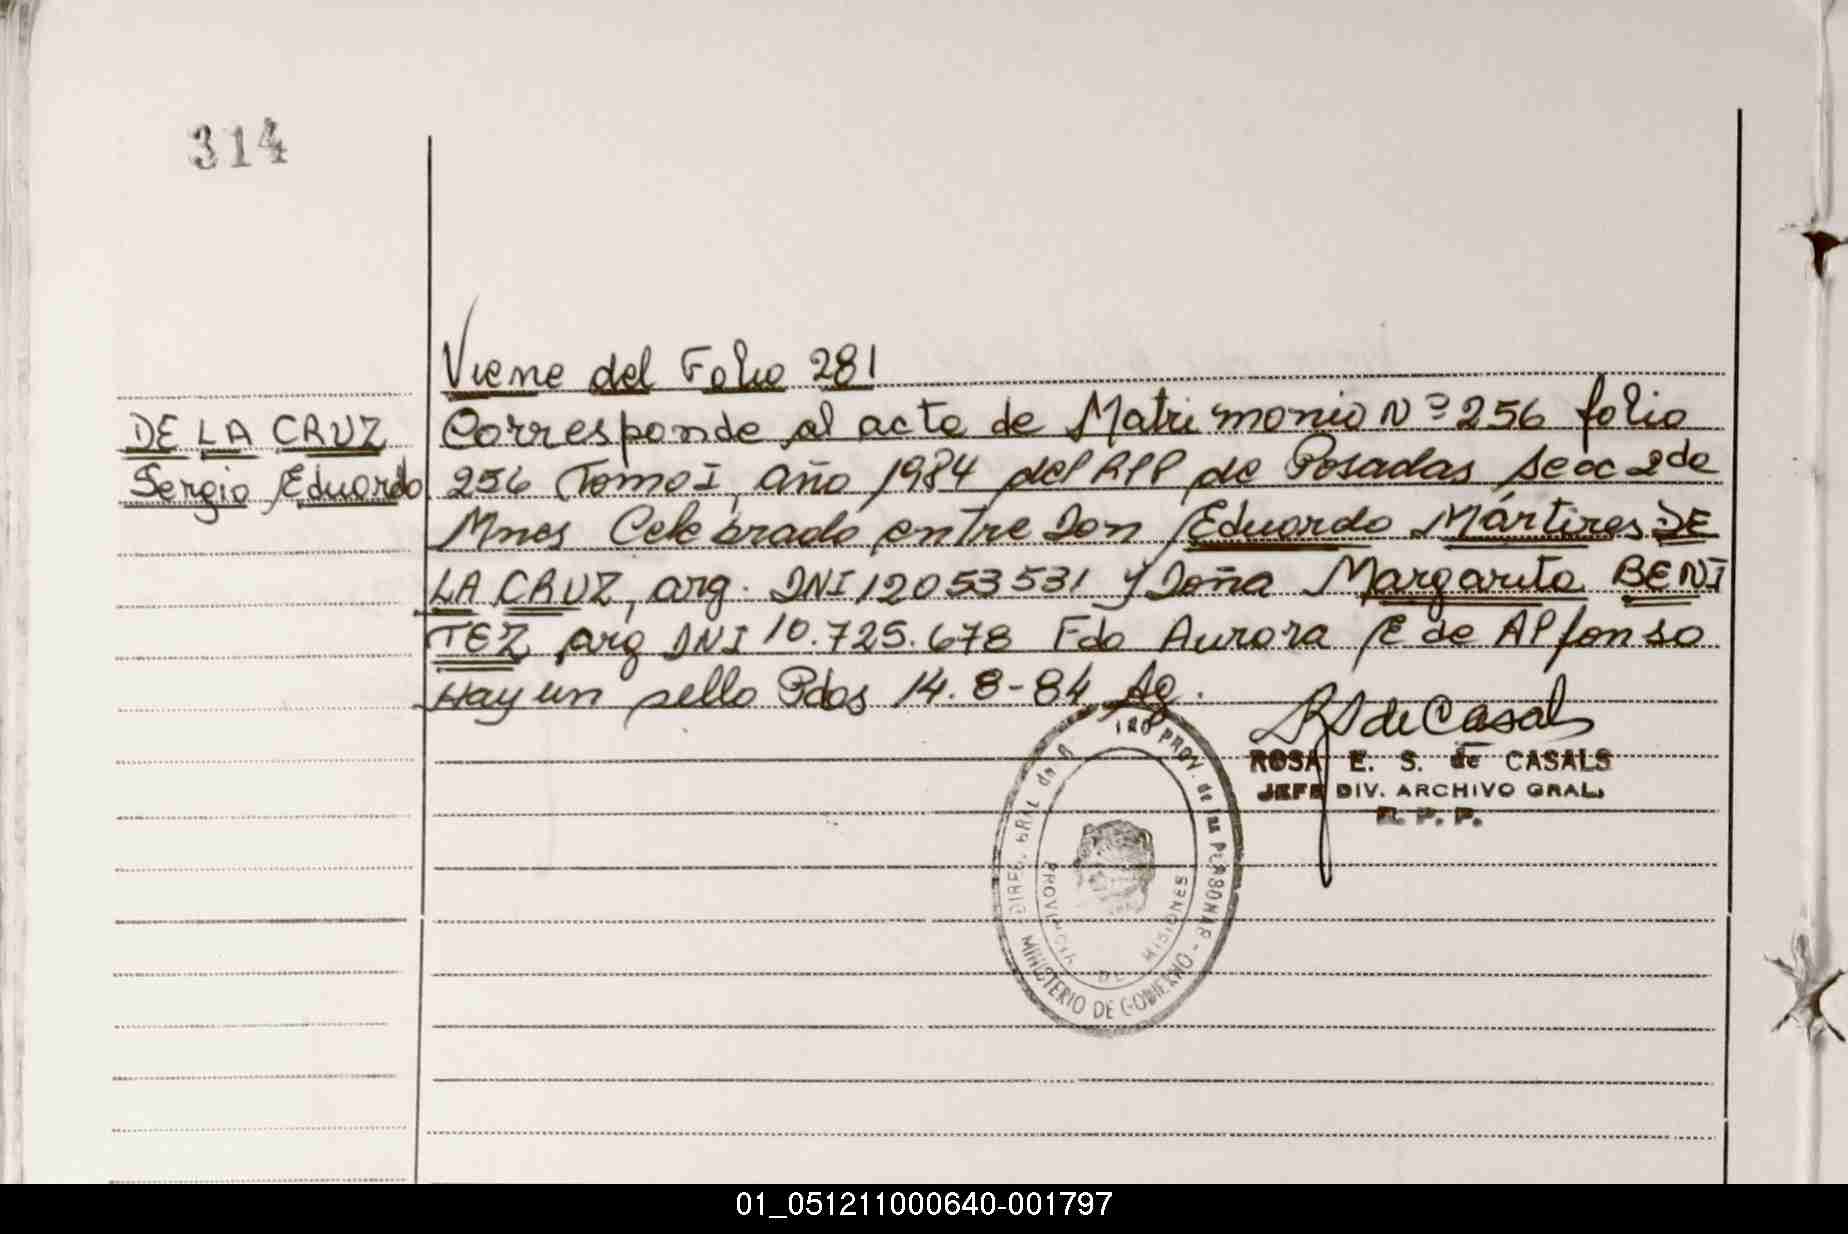 314
Viene del Folio 281
DE LA CRUZ
Sergio Eduardo
Corresponde al acta de Matrimonio Nº 256 folio
256 Tomo I, año 1984 del RPP de Posadas Secc 2da
Mnes Celebrado entre Don Eduardo Mártires DE
LA CRUZ, arg. DNI 12053531 y Doña Margarita BENI
TEZ arg DNI 10.725.678 Fdo Aurora E de Alfonso
Hay un sello Pdas 14.8-84 Ag.
RS de Casals
ROSA E. S. de CASALS
JEFE DIV. ARCHIVO GRAL.
R. P. P.
DIREC. GRAL del PROV. de las PERSONAS
MINISTERIO DE GOBIERNO
PROVINCIA DE MISIONES
01_051211000640-001797